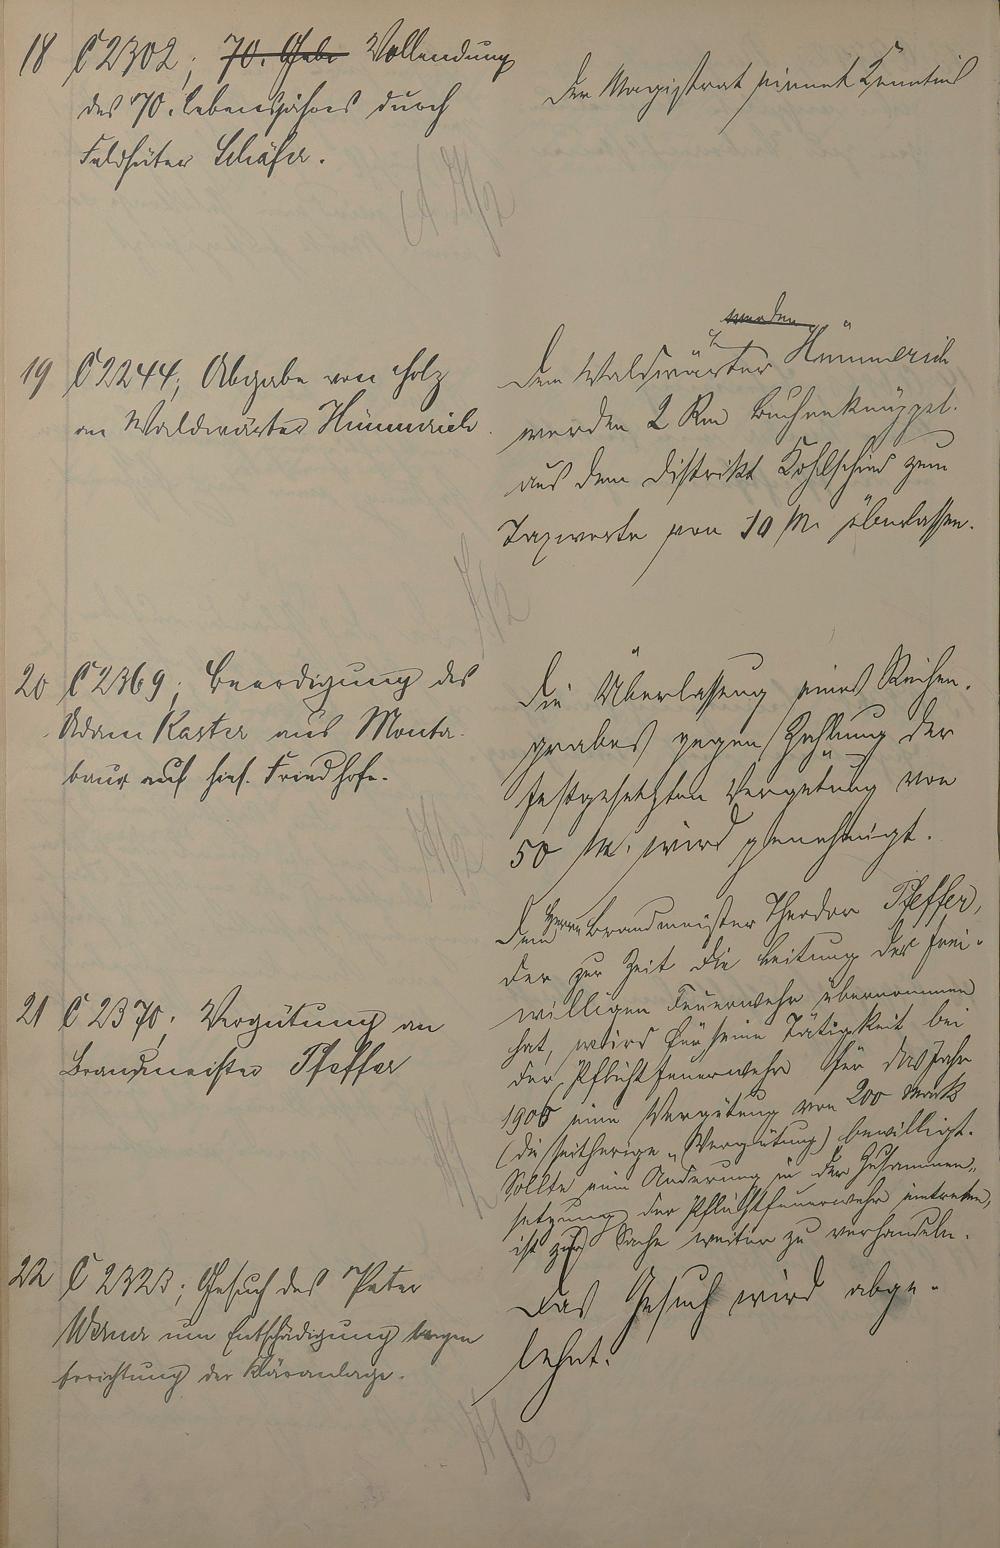 18 C 2302; 70. Gebu Vollendung
des 70. Lebensjahres durch
Feldhüter Schäfer.
Der Magistrat nimmt Kenntnis
19 C 2244; Abgabe von Holz
an Waldwärter Hümmerich.
werden
Dem Waldwärter Hümmerich
werden 2 Rm Buchenknüppel
aus dem Distrikt Kohlscheid zum
Taxwerte von 10 M. überlassen.
20 C 2369; Beerdigung des
Adam Kaster aus Monta-
baur auf hies. Friedhofe.
Die Überlassung eines Reihen-
grabes gegen Zahlung der
festgesetzten Vergütung von
50 M. wird genehmigt.
21 C 2370; Vergütung an
Brandmeister Pfeffer
Dem Herrn Brandmeister Theodor Pfeffer,
der zur Zeit die Leitung der frei-
willigen Feuerwehr übernommen
hat, wird für seine Tätigkeit bei
der Pflichtfeuerwehr für das Jahr
1906 eine Vergütung von 200 Mark
(die seitherige Vergütung) bewilligt.
Sollte eine Änderung in der Zusammen-
setzung der Pflichtfeuerwehr eintreten,
ist zur Sache weiter zu verhandeln.
22 C 2323; Gesuch des Peter
Werner um Entschädigung wegen
Errichtung der Kläranlage.
Das Gesuch wird abge-
lehnt.